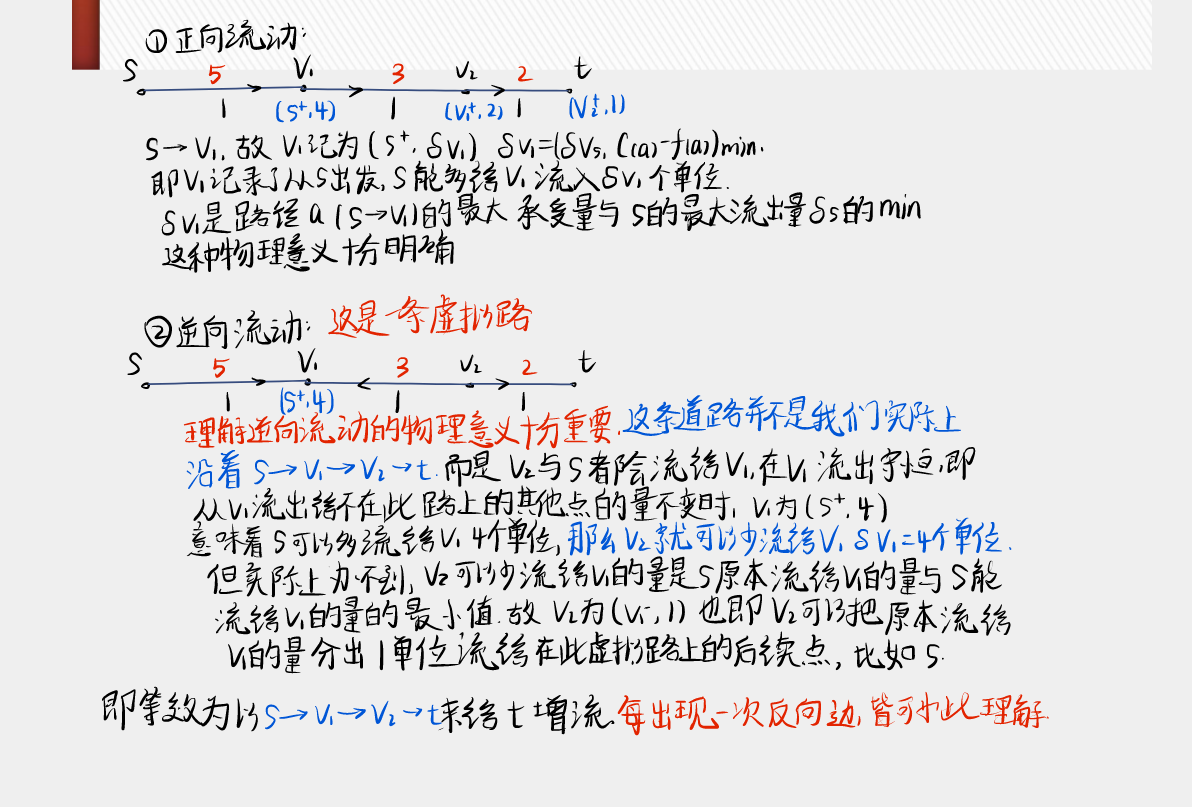 ①正向流动:
S 5 V₁ 3 V₂ 2 t
1 (S⁺,4) 1 (V₁⁺,2) 1 (V₂⁺,1)
S→V₁, 故 V₁记为(S⁺, δV₁) δV₁=(δVs, C(a)-f(a))min.
即V₁记录了从S出发,S能多给V₁流入δV₁个单位.
δV₁是路径a(S→V₁)的最大承受量与S的最大流出量δs的min
这种物理意义十分明确
②逆向流动: 这是一条虚拟路
S 5 V₁ 3 V₂ 2 t
1 (S⁺,4) 1 1
理解逆向流动的物理意义十分重要,这条道路并不是我们实际上
沿着 S→V₁→V₂→t.而是V₂与S者都会流给V₁,在V₁流出守恒,即
从V₁流出给不在此路上的其他点的量不变时, V₁为(S⁺,4)
意味着S可以多流给V₁ 4个单位,那么V₂就可以少流给V₁ δV₁=4个单位.
但实际上办不到, V₂可以少流给V₁的量是S原本流给V₁的量与S能
流给V₁的量的最小值.故V₂为(V₁⁻,1)也即V₂可以把原本流给
V₁的量分出1单位流给在此虚拟路上的后续点,比如S.
即等效为以S→V₁→V₂→t来给t增流.每出现一次反向边,皆可如此理解.